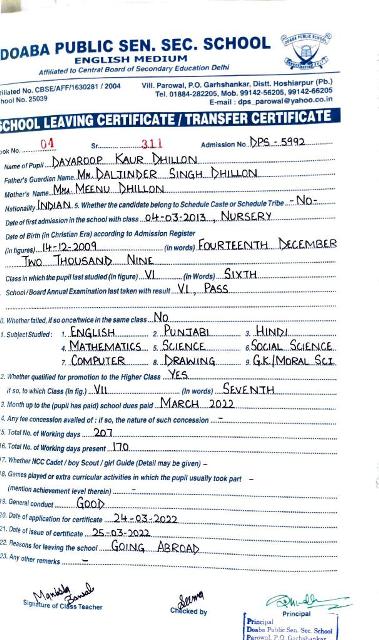 DOABA PUBLIC SEN. SEC. SCHOOL
ENGLISH MEDIUM
Affiliated to Central Board of Secondary Education Delhi
filiated No. CBSE/AFF/1630281 / 2004
Vill. Parowal, P.O. Garhshankar, Distt. Hoshiarpur (Pb.)
hool No. 25039
Tel. 01884-282205, Mob. 99142-56205, 99142-66205
E-mail : dps_parowal@yahoo.co.in
SCHOOL LEAVING CERTIFICATE / TRANSFER CERTIFICATE
ook No. 04 Sr. 311 Admission No. DPS-5992
Name of Pupil DAYAROOP KAUR DHILLON
Father's/Guardian Name Mr. DALJINDER SINGH DHILLON
Mother's Name Mrs MEENU DHILLON
Nationality INDIAN 5. Whether the candidate belong to Schedule Caste or Schedule Tribe -No-
Date of first admission in the school with class 04-03-2013, NURSERY
Date of Birth (in Christian Era) according to Admission Register
(in figures) 14-12-2009 (in words) FOURTEENTH DECEMBER
TWO THOUSAND NINE
Class in which the pupil last studied (in figure) VI (In Words) SIXTH
School / Board Annual Examination last taken with result VI, PASS
0. Whether failed, if so once/twice in the same class No
1. Subject Studied : 1. ENGLISH 2. PUNJABI 3. HINDI
4. MATHEMATICS 5. SCIENCE 6. SOCIAL SCIENCE
7. COMPUTER 8. DRAWING 9. G.K/MORAL SCI.
2. Whether qualified for promotion to the Higher Class YES
if so, to which Class (In fig.) VII (In Words) SEVENTH
3. Month up to the (pupil has paid) school dues paid MARCH 2022
4. Any fee concession availed of : if so, the nature of such concession -
15. Total No. of Working days 207
16. Total No. of Working days present 170
17. Whether NCC Cadet / boy Scout / girl Guide (Detail may be given) -
18. Games played or extra curricular activities in which the pupil usually took part -
(mention achievement level therein) -
19. General conduct GOOD
20. Date of application for certificate 24-03-2022
21. Date of issue of certificate 25-03-2022
22. Reasons for leaving the school GOING ABROAD
23. Any other remarks -
Signature of Class Teacher
Checked by
Principal
Principal
Doaba Public Sen. Sec. School
Parowal, P.O. Garhshankar